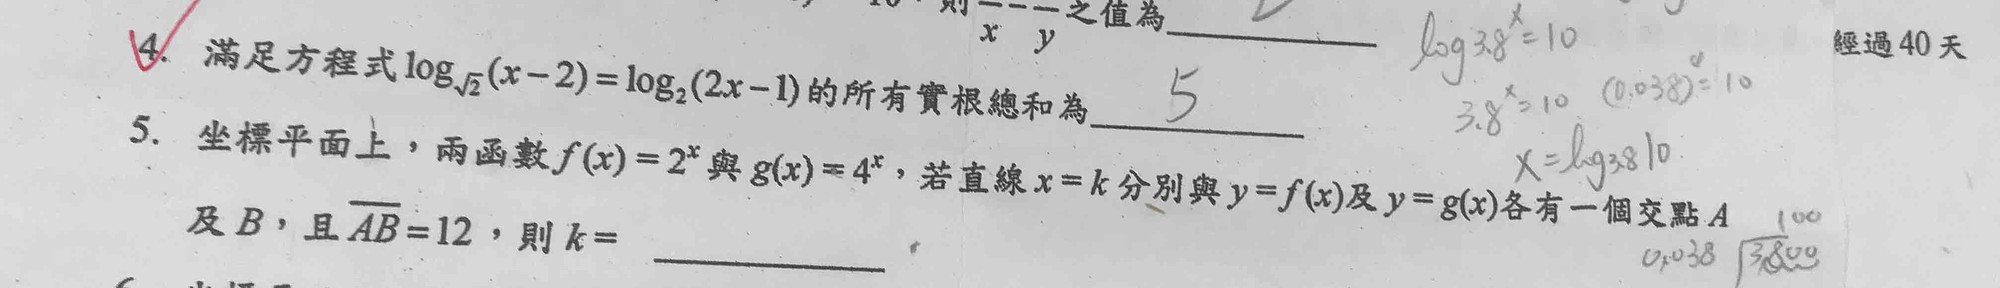 則 1/x - 1/y 之值為
log3.8^x=10
經過40天
4. 滿足方程式 log_√2(x-2)=log_2(2x-1)的所有實根總和為 5
3.8^x=10 (0.038)^y=10
x=log3.8 10
5. 坐標平面上,兩函數 f(x)=2^x 與 g(x)=4^x,若直線 x=k 分別與 y=f(x)及 y=g(x)各有一個交點 A
及 B,且 AB=12,則 k=
100
0.038 3.800